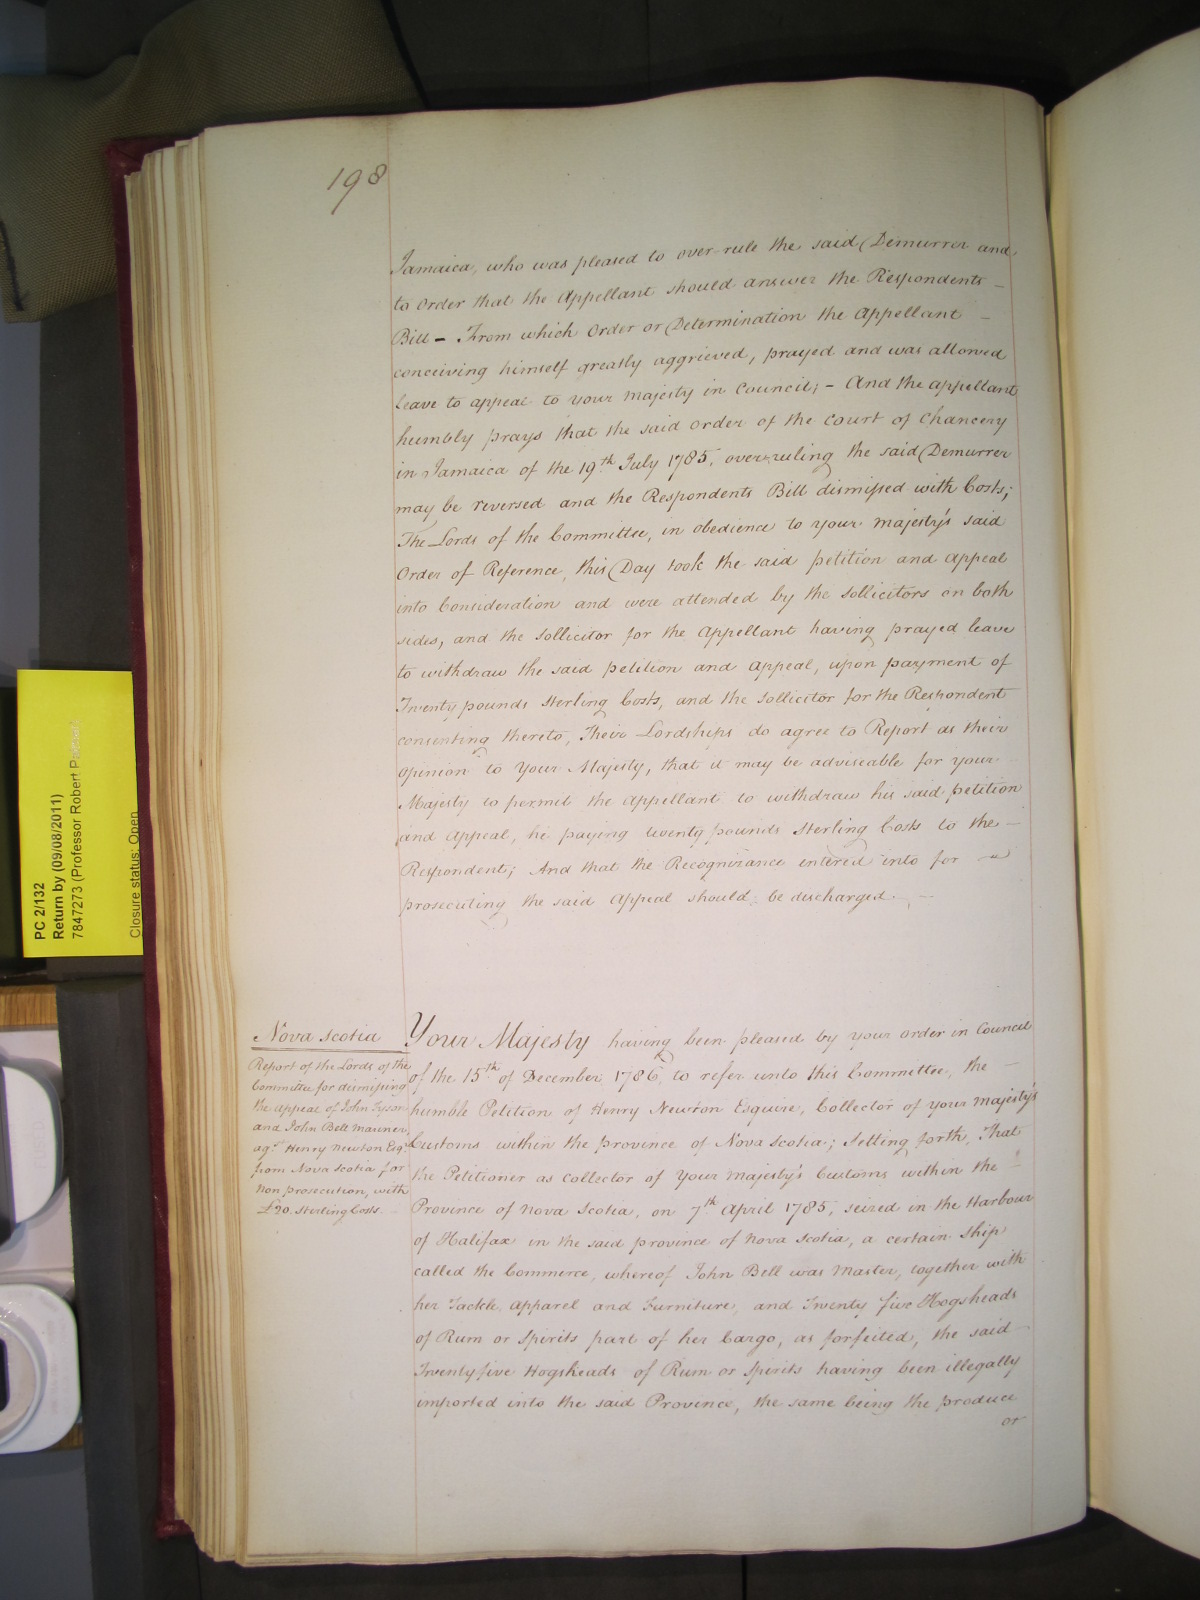 198
Jamaica, who was pleased to over-rule the said Demurrer and
to Order that the Appellant should answer the Respondents –
Bill – From which Order or Determination the Appellant –
conceiving himself greatly aggrieved, prayed and was allowed
leave to appeal to your Majesty in Council; – And the appellant
humbly prays that the said order of the Court of Chancery
in Jamaica of the 19th July 1785, over-ruling the said Demurrer
may be reversed and the Respondents Bill dismissed with Costs;
The Lords of the Committee, in obedience to your Majesty's said
Order of Reference, this Day took the said petition and Appeal
into Consideration and were attended by the Sollicitors on both
sides, and the Sollicitor for the Appellant having prayed leave
to withdraw the said petition and Appeal, upon payment of
Twenty pounds Sterling Costs, and the Sollicitor for the Respondent
consenting thereto, Their Lordships do agree to Report as their
Opinion to Your Majesty, that it may be adviseable for your
Majesty to permit the Appellant to withdraw his said petition
and Appeal, he paying twenty pounds Sterling Costs to the –
Respondent; And that the Recognizance entered into for –
prosecuting the said Appeal should be discharged. –
Nova Scotia
Report of the Lords of the
Committee for dismissing
the appeal of John Tyson
and John Bell Mariner,
agt. Henry Newton Esqr.
from Nova Scotia for
Non prosecution, with
£20. Sterling Costs.
Your Majesty having been pleased by your order in Council
of the 15th of December 1786, to refer unto this Committee, the –
humble Petition of Henry Newton Esquire, Collector of your Majesty's
Customs within the province of Nova Scotia; Setting forth, That
the Petitioner as Collector of Your Majesty's Customs within the –
Province of Nova Scotia, on 7th April 1785, seized in the Harbour
of Halifax in the said province of Nova Scotia, a certain Ship
called the Commerce, whereof John Bell was Master, together with
her Tackle, Apparel and Furniture, and Twenty five Hogsheads
of Rum or Spirits part of her Cargo, as forfeited, the said
Twenty five Hogsheads of Rum or Spirits having been illegally
imported into the said Province, the same being the produce
or
PC 2/132
Return by (09/08/2011)
7847273 (Professor Robert
Closure status: Open